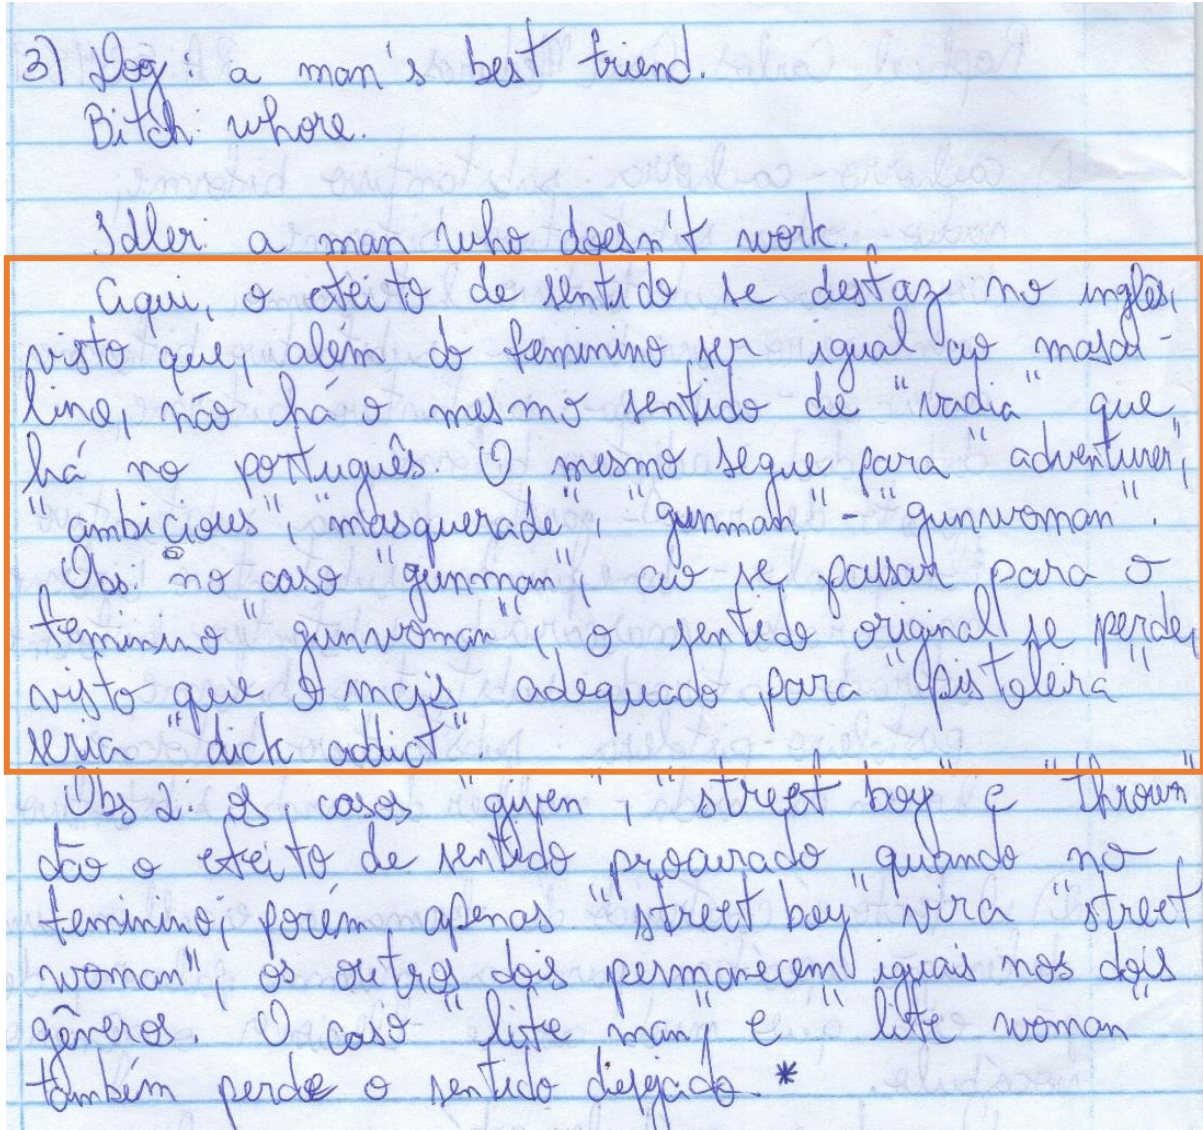 3) Dog: a man's best friend.
Bitch: whore.
Idler: a man who doesn't work.
Aqui, o efeito de sentido se desfaz no inglês,
visto que, além do feminino ser igual ao mascu-
lino, não há o mesmo sentido de "vadia" que
há no português. O mesmo segue para "adventurer",
"ambicious", "masquerade", "gunman" - "gunwoman".
Obs: no caso "gunman", ao se passar para o
feminino "gunwoman", o sentido original se perde,
visto que o mais adequado para "pistoleira"
seria "dick addict".
Obs 2: os casos "given", "street boy" e "thrown"
dão o efeito de sentido procurado quando no
feminino; porém, apenas "street boy" vira "street
woman", os outros dois permanecem iguais nos dois
gêneros. O caso "life man" e "life woman"
também perde o sentido desejado. *